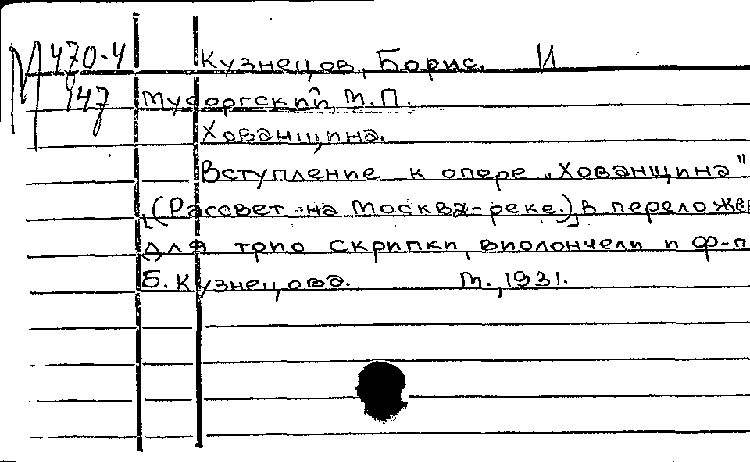 М 470-4 Кузнецов, Борис. И
947 Мусоргский, М.П.
Хованщина.
Вступление к опере „Хованщина"
[(Рассвет на Москва-реке)] в переложе
для трио скрипки, виолончели и ф-п
Б. Кузнецова. М., 1931.